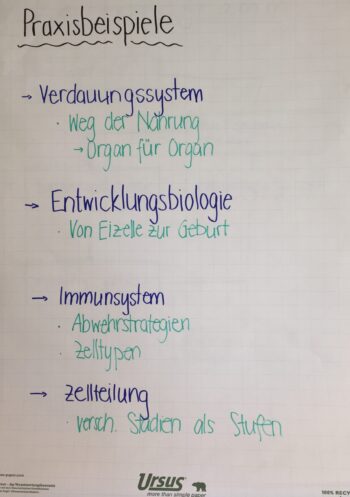 Praxisbeispiele
→ Verdauungssystem
· Weg der Nahrung
→ Organ für Organ
→ Entwicklungsbiologie
· Von Eizelle zur Geburt
→ Immunsystem
· Abwehrstrategien
· Zelltypen
→ Zellteilung
· versch. Stadien als Stufen
Ursus
more than simple paper
100% RECY